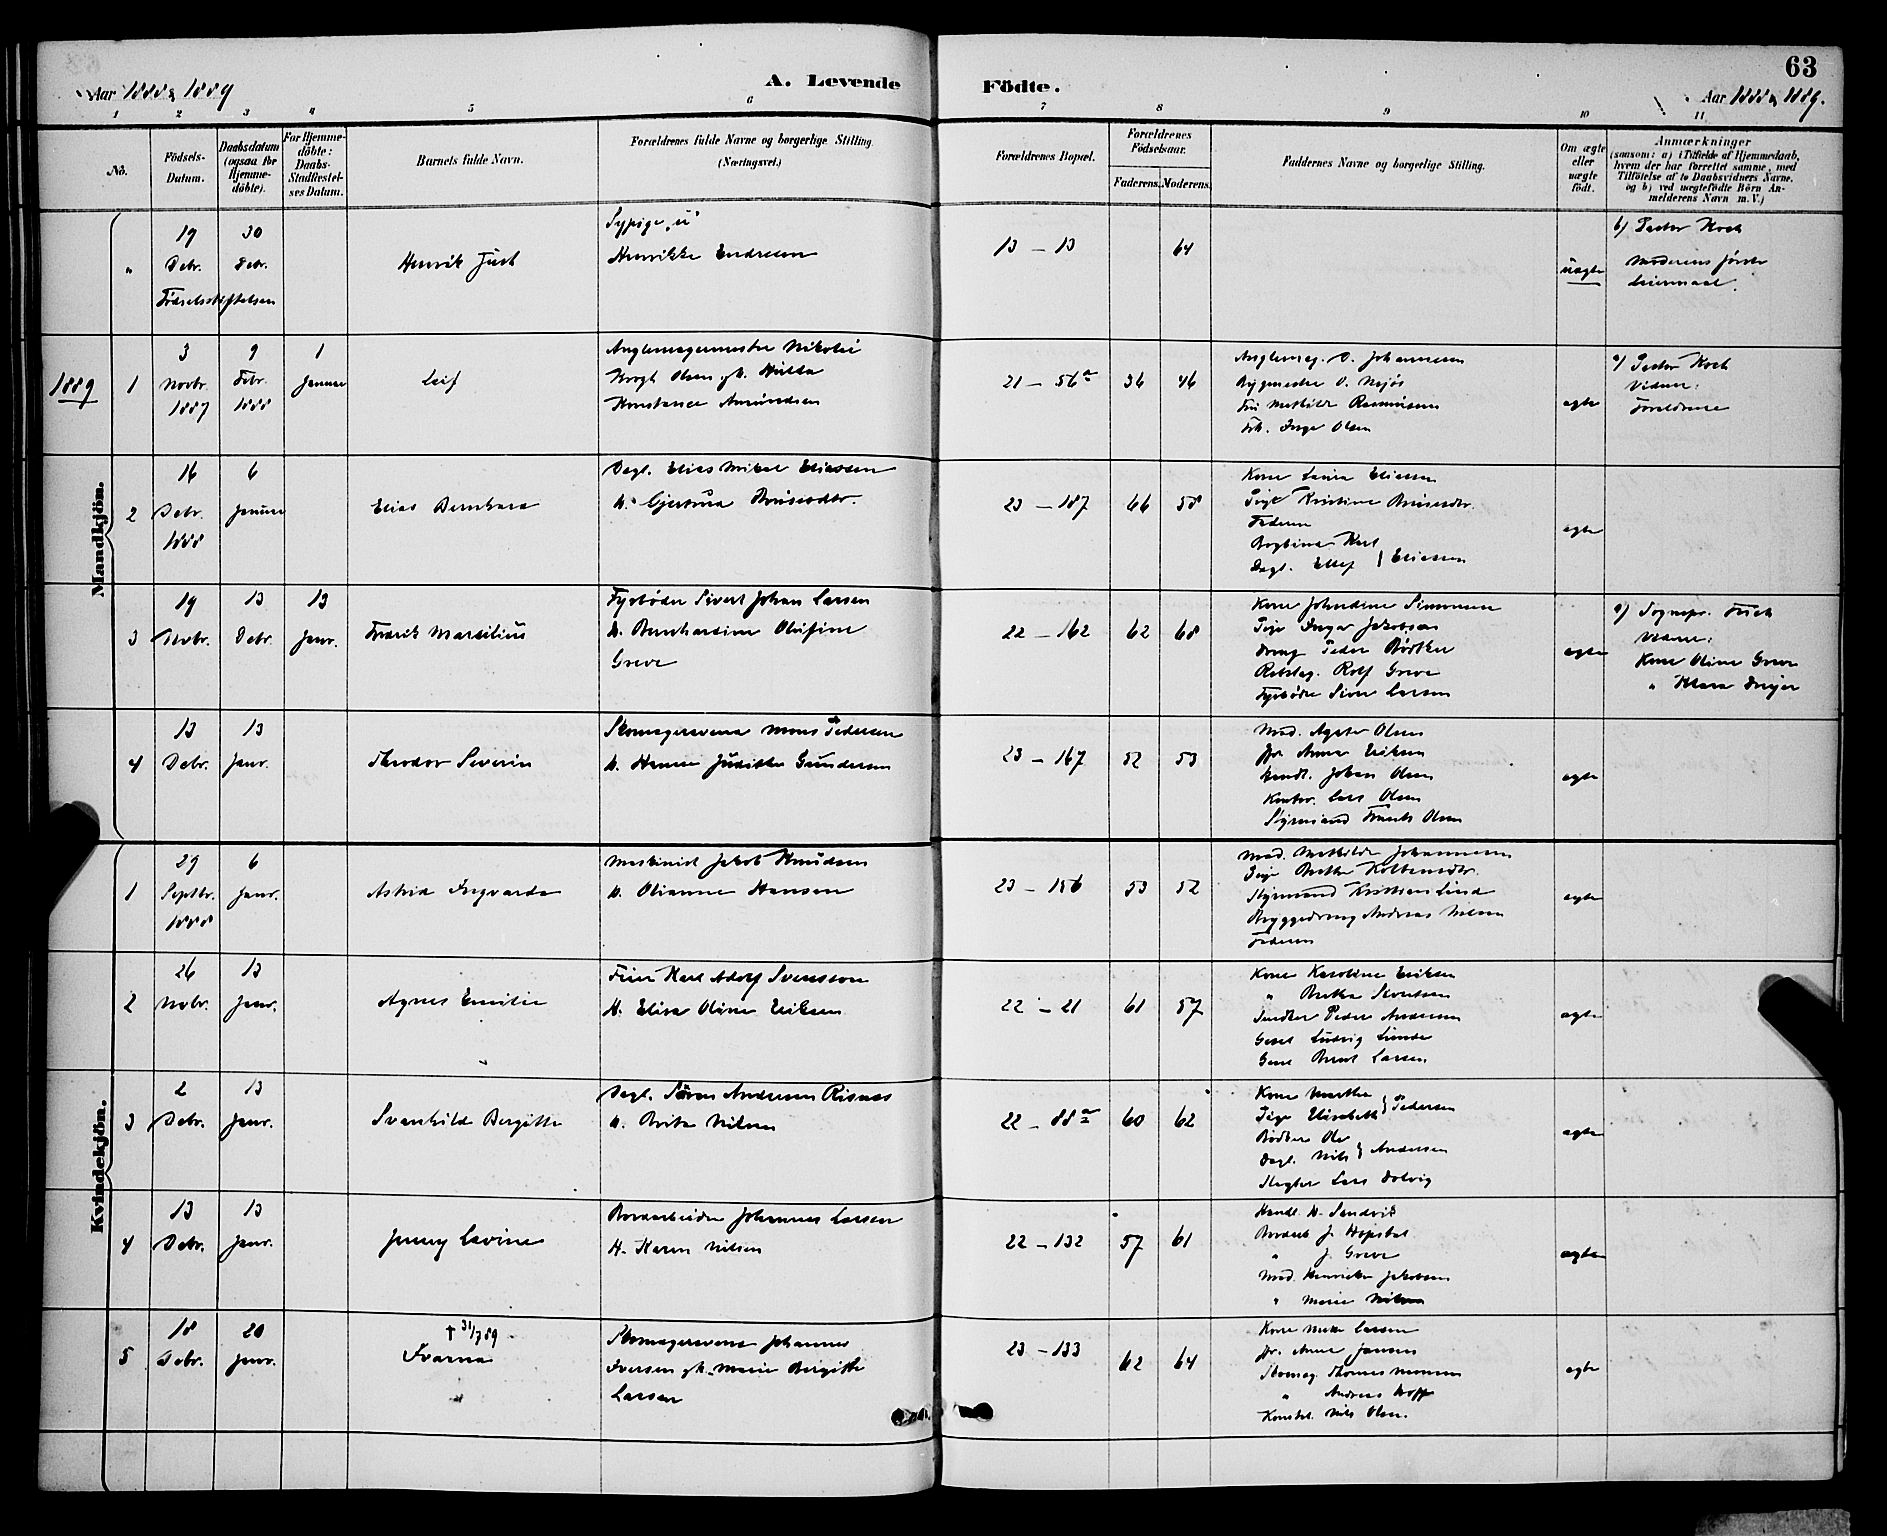 63
Aar 1888 & 1889
A. Levende
Födte.
Aar 1888 & 1889.
1 2 3 4 5 6 7 8 9 10 11
No.
Födsels-
Datum.
Daabsdatum
(ogsaa for
Hjemme-
döbte).
For Hjemme-
döbte:
Daabs-
Stadfæstel-
ses Datum.
Barnets fulde Navn.
Forældrenes fulde Navne og borgerlige Stilling.
(Næringsvei.)
Forældrenes Bopæl.
Forældrenes
Födselsaar.
Faderens. Moderens.
Faddernes Navne og borgerlige Stilling.
Om ægte
eller
uægte
födt.
Anmærkninger
(saasom: a) i Tilfælde af Hjemmedaab,
hvem der har forrettet samme, med
Tilföielse af to Daabsvidners Navne,
og b) ved uægtefödte Börn An-
melderens Navn m. V.)
Mandkjön.
" 19 Debr. 30 Debr.
Fødselsstiftelsen
Henrik Just
Sypige "u"
Henrikke Endresen
13 - 13 64
uægte
b) Pastor Koch
Moderens første
Leiermaal.
1889
1 3 Novbr. 1887 9 Febr. 1888 1 Januar
Leif
Nikolai
Krogh Olsen og h. Hulda
Konstance Amundsen
21 - 56a 36 46
O. Johannesen
Bygmester O.
Fru Mathilde Rasmussen
Frk. Inga Olsen
ægte
a) Pastor Koch
Vidner:
Forældrene
2 16 Debr. 1888 6 Januar
Elias Bernhard
Dagl. Elias Mikal Eliassen
h. Gjertrud
23 - 187 66 58
Kone Laura Eliassen
Pige Kristine
Faderen
Karl
Dagl. Ellef } Eliassen
ægte
3 19 Novbr. 13 Debr. 13 Janr.
Fredrik Marselius
Fyrbøder Sivert Johan Larsen
h. Bernhardine Olufine
Greve
22 - 162 62 68
Kone Johndine Simonsen
Pige Inga Jakobsen
Dreng Peder Bødtker
Rebslag. Rolf Greve
Fyrbøder Siver Larsen
ægte
a) Sognepr. Irsch
Vidner:
Kone Oline Greve
" Klara
4 13 Debr. 13 Janr.
Theodor Severin
Skomagersvend Mons Pedersen
h. Hanna Judithe Gundersen
23 - 167 52 53
Mad. Agathe Olsen
Jfr. Anna Eriksen
Handl. Johan Olsen
Kontor. Lars Olsen
Styrmand Frants Olsen
ægte
Kvindekjön.
1 29 Septbr. 1888 6 Janr.
Astrid Ingvarda
Maskinist Jakob Knudsen
h. Olianne Hansen
23 - 156 53 52
Mad. Mathilde Johannesen
Pige Brithe
Styrmand Kristian Lind
Bryggedreng Andreas Nilsen
Faderen
ægte
2 26 Novbr. 13 Janr.
Agnes Emilie
Feier Karl Adolf Svensson
h. Elisa Oline Eriksen
22 - 21 61 57
Kone Karoline Eriksen
" Brithe
Snedker Peder Andersen
Gesel Ludvig Lunde
Gesel Bernt Larsen
ægte
3 2 Debr. 13 Janr.
Svanhilde Bergitte
Dagl. Søren Andersen Risnes
h. Brita Nilsen
22 - 88a 60 62
Kone Marthe
Pige Elisabeth } Pedersen
Bødker Ole
Dagl. Nils } Andersen
Slagter Lars Dolvig
ægte
4 13 Debr. 13 Janr.
Jenny Lavine
Bordarbeider Johannes Larsen
h. Karen Nilsen
22 - 132 57 61
Handl. H. Sandvik
Bordarb J. Hopsdal
" J. Greve
Mad. Henrikke Jakobsen
" Marie Nilsen
ægte
5 18 Debr. 20 Janr.
† 31/7 89
Ivarna
Skomagersvend Johannes
Iversen og h. Marie Bergitte
Larsen
23 - 133 62 64
Kone Mette Larsen
Jfr. Anna Jansen
Skomag. Thomas Monsen
" Andreas Hoff
Konstbl. Nils Olsen.
ægte